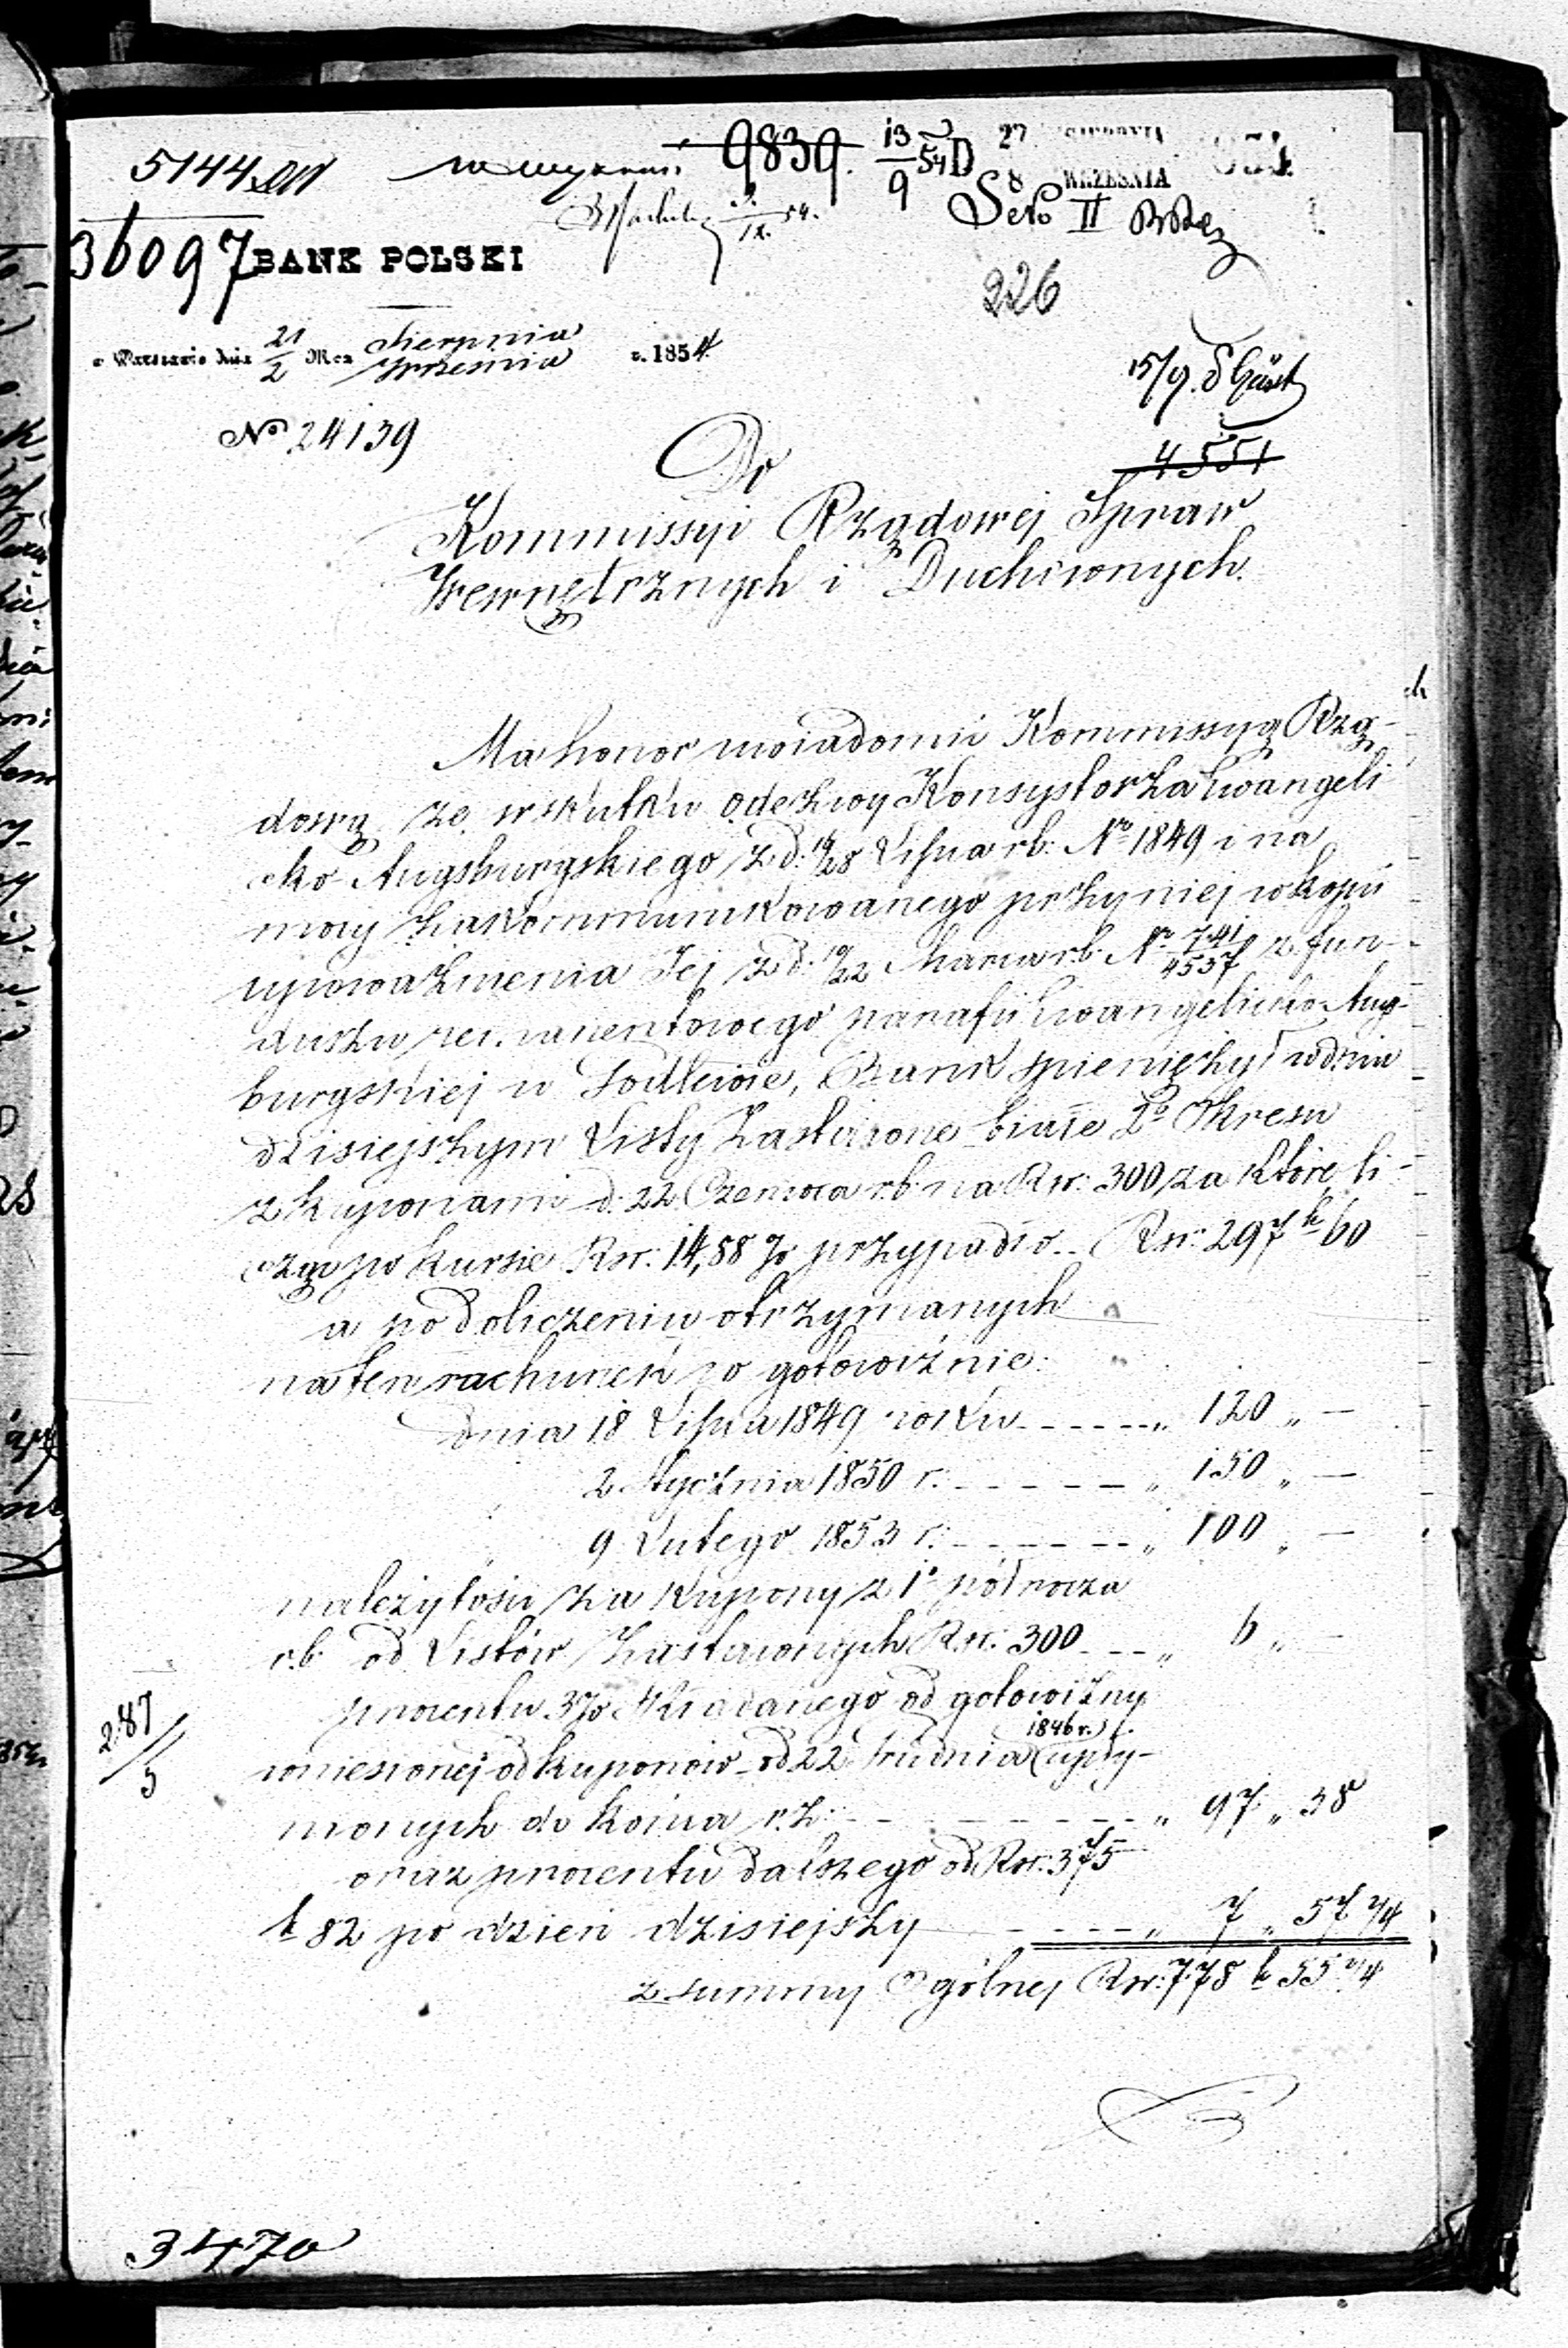 5144
9839. 13/9 54 D 27 SIERPNIA
8 WRZEŚNIA
Sek II
36097 BANK POLSKI
226
w Warszawie dnia 21/2 Mca Sierpnia Września r. 1854.
15/9.
No 24139
4551
Do
Kommissyi Rządowej Spraw
Wewnętrznych i Duchownych.
Ma honor uwiadomić Kommissyą Rzą-
dową że w skutku odezwy Konsystorza Ewangeli
cko Augsburgskiego z d. 16/28 Lipca rb. No 1849 i na
mocy zakommunikowanego przy niej w kopii
upoważnienia Jej z d. 10/22 Marca r.b. No 741/4537 z fun-
duszu remanentowego parafii Ewangelicko Aug-
burgskiej w Godlewie, Bank spieniężył w dniu
dzisiejszym Listy Zastawne białe 2o Okresu
z kuponami d. 22 Czerwca r.b. na Rsr. 300 za które li-
cząc po kursie Rsr. 14,88 % przypadło Rsr. 297 k 60
a po doliczeniu otrzymanych
na ten rachunek w gotowiźnie:
dnia 18 Lipca 1849 roku - - - - - „ 120 „ —
2 Stycznia 1850 r. - - - - - „ 150 „ —
9 Lutego 1853 r. - - - - - - „ 100 „ —
należytości za kupony z 1o półrocza
r.b. od Listów Zastawnych Rsr. 300 - - „ 6 „ —
procentu 3% składanego od gotowizny
287/5
wniesionej od kuponów od 22 Grudnia 1846 r. upły-
nionych do końca r.z. - - - - - - - „ 97 „ 38
oraz procentu dalszego od Rsr. 375
k 82 po dzień dzisiejszy - - - - „ 7 „ 57 3/4
z summy Ogólnej Rsr. 778 k 55 3/4
31470